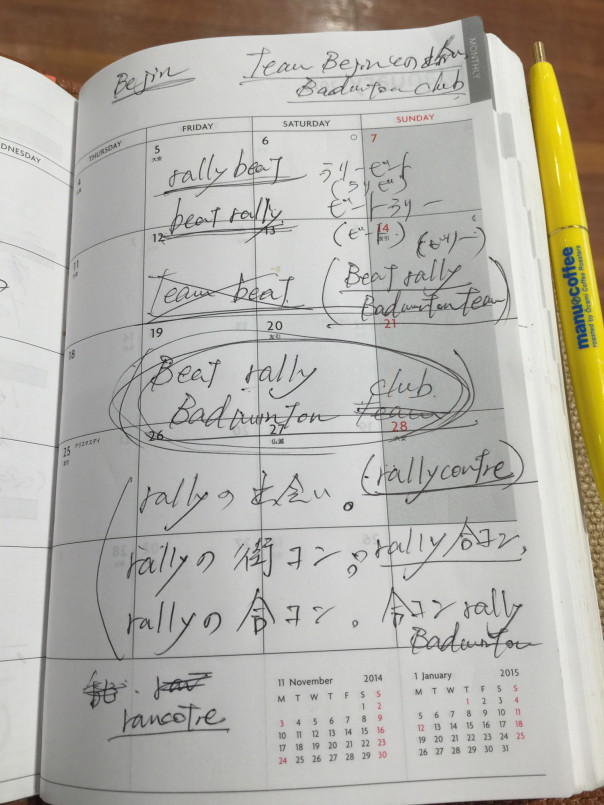 Begin
Team Beginの出会い
Badminton club
MONTHLY
DNESDAY
THURSDAY
FRIDAY
SATURDAY
SUNDAY
4
5
大安
6
7
rally beat
ラリービート
(ラリビ)
beat rally
ビートラリー
11
12
13
14
(ビート)
(ビリー)
Team beat
(Beat rally
Badminton team)
18
19
20
21
Beat rally
Badminton club
team
25 クリスマスデイ
26
27
仏滅
28
大安
rallyの出会い。
(rallycontre)
rallyの街コン。
rally合コン,
rallyの合コン。
合コンrally
Badminton
rancotre
11 November 2014
M T W T F S S
1 2
3 4 5 6 7 8 9
10 11 12 13 14 15 16
17 18 19 20 21 22 23
24 25 26 27 28 29 30
1 January 2015
M T W T F S S
1 2 3 4
5 6 7 8 9 10 11
12 13 14 15 16 17 18
19 20 21 22 23 24 25
26 27 28 29 30 31
manu coffee
roasted by Ocean Coffee Roasters